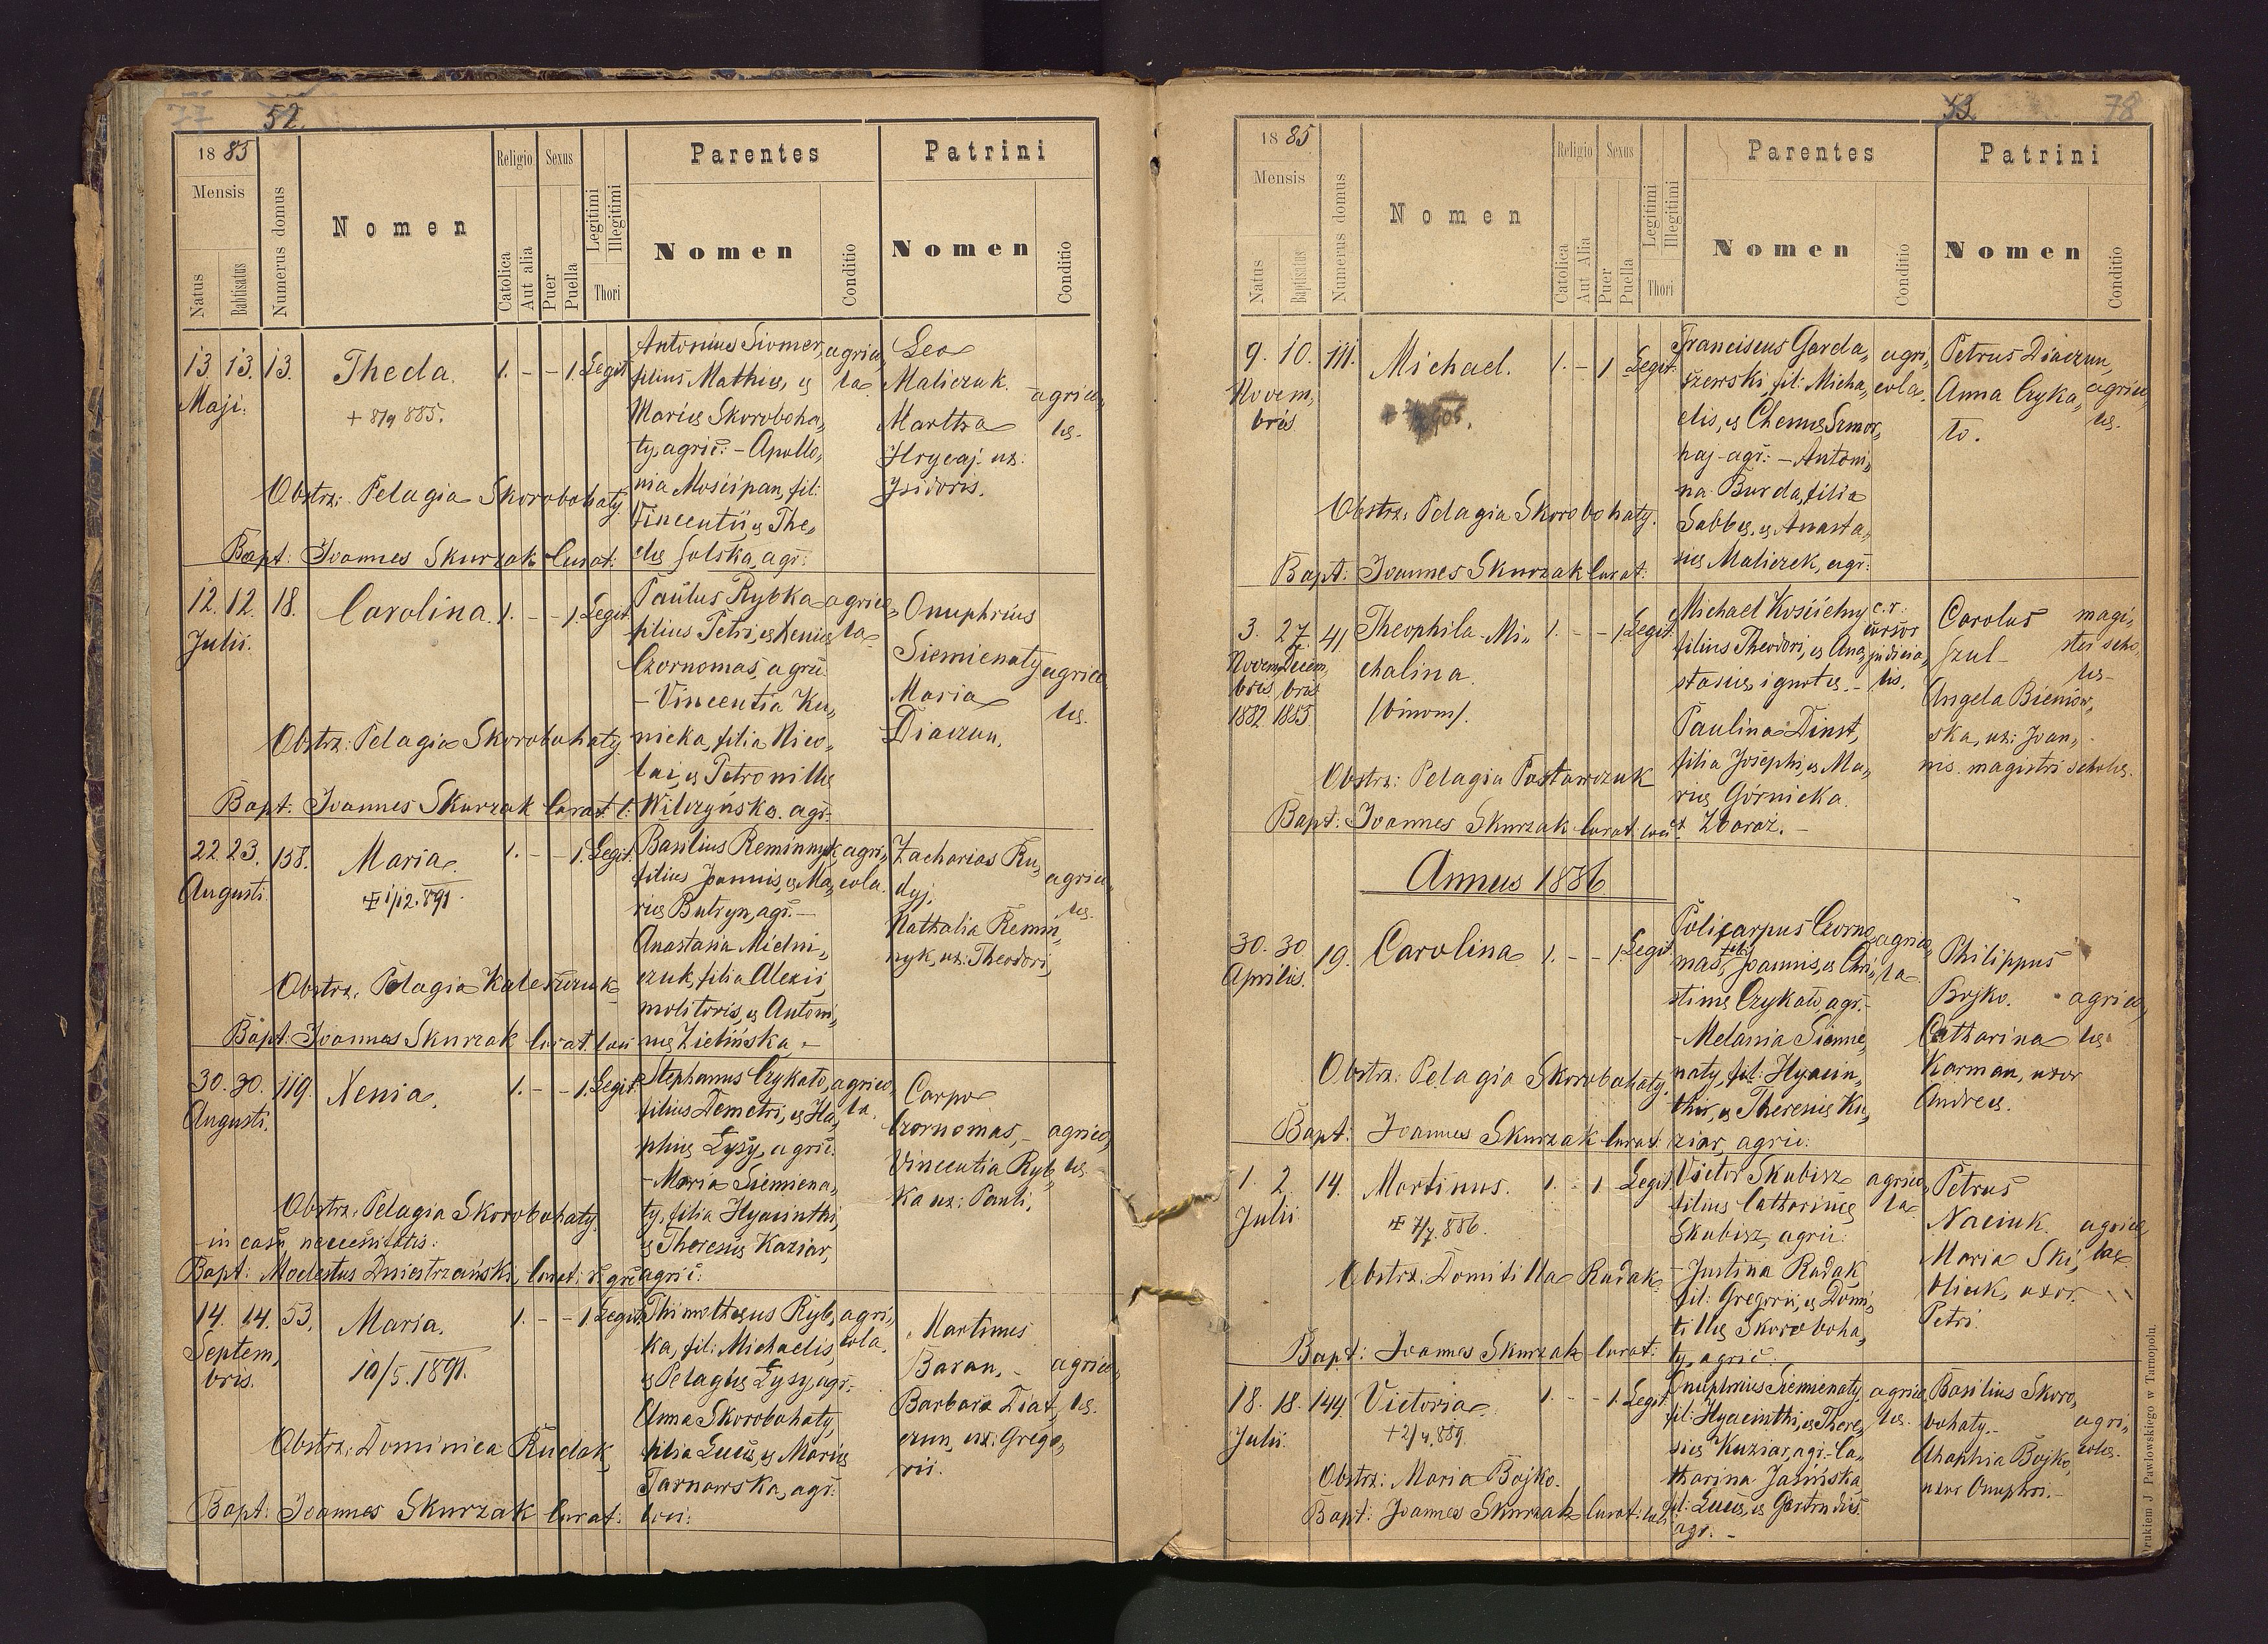 77 52.
1885
Mensis
Natus
Babtisatus
Numerus domus
Nomen
Religio
Catolica
Aut alia
Sexus
Puer
Puella
Legitimi
Illegitimi
Thori
Parentes
Nomen
Conditio
Patrini
Nomen
Conditio
13. 13. 13. Thecla. 1. - - 1. Legit.
Maji.
+ 8/9 885.
Antonius Siomer,
filius Mathiæ, et
Mariæ Skoroboha„
ty, agric: - Apollo„
nia Mościpan, fil:
Vincentii, et The„
clæ Solska, agr:
agrico„
la
Leo
Maliczuk.
Martha
Hrycaj. ux:
Ysidoris.
agrico„
læ.
Obstrx: Pelagia Skorobohaty.
Bapt: Joannes Skurzak Curat:
12. 12. 18. Carolina. 1. - - 1. Legit.
Julii.
Paulus Rybka
filius Petri, et Xeniæ
Czornomas, agric:
- Vincentia Ku„
nicka, filia Nico„
lai, et Petronillæ
Wilczyńska. agr:
agrico„
la
Onuphrius
Siemienaty
Maria
Diaczun.
agrico„
læ.
Obstrx: Pelagia Skorobohaty.
Bapt: Joannes Skurzak Curat. l:
22. 23. 158. Maria. 1. - - 1. Legit.
Augusti.
+ 1/12. 891.
Basilius Reminnyk
filius Joannis, et Ma„
riæ Butryn, agr. -
Anastasia Mielni„
czuk, filia Alexii
molitoris, et Antoni„
næ Zielińska. -
agri„
cola.
Zacharias Ru„
dyj.
Nathalia Remin„
nyk, ux: Theodori,
agrico„
læ.
Obstrx: Pelagia Kaleszczuk
Bapt: Joannes Skurzak Curat. loci
30. 30. 119. Xenia. 1. - - 1. Legit.
Augusti.
Stephanus Czykało,
filius Demetri, et Ha„
phiæ Łysy, agric:
- Maria Siemiena„
ty, filia Hyacinthi,
et Theresiæ Kaziar,
agric:
agrico„
la.
Carpo
Czornomas, -
Vincentia Ryb„
ka ux: Pauli,
agrico„
læ.
Obstrx: Pelagia Skorobohaty.
in casu necessitatis:
Bapt: Modestus Dniestrzański, Curat: r. gr:
14. 14. 53. Maria. 1. - - 1 Legit.
Septem„
bris.
10/5. 1891.
Thimotheus Ryb„
ka, fil: Michaelis,
et Pelagiæ Łysy, agr:
Anna Skorobohaty,
filia Lucæ, et Mariæ
Tarnawska, agr:
agri„
cola.
Martinus
Baran, -
Barbara Diat„
czun, ux: Grego„
rii.
agrico„
læ.
Obstrx: Dominica Rudak,
Bapt: Joannes Skurzak Curat: loci:
53. 78
1885
Mensis
Natus
Baptisatus
Numerus domus
Nomen
Religio
Catolica
Aut Alia
Sexus
Puer
Puella
Legitimi
Illegitimi
Thori
Parentes
Nomen
Conditio
Patrini
Nomen
Conditio
9. 10. 111. Michael. 1. - 1 Legit.
Novem„
bris
Franciscus Garda„
szewski, fil: Micha„
elis, et
haj - agr: - Antoni„
na Burda, filia
Sabbæ, et Anasta„
siæ Maliczek, agr:
agri„
cola.
Petrus Diaczun,
Anna Czyka„
ło.
agrico„
læ.
Obstrx: Pelagia Skorobohaty.
Bapt: Joannes Skurzak Curat:
3. 27. 41 Theophila - Mi„ 1. - - 1. Legit.
Novem„ Decem„
bris bris
1882. 1885
chalina.
/binom/.
Michael Kościelny
filius Theodori, et Ana„
stasiæ ignotæ. -
Paulina Dinst,
filia Josephi, et Ma„
riæ Górnicka.
Zbaraż. -
c. r.
cursor
judicia„
lis.
Carolus
Szul
Angela Bieniow„
ska, ux: Joan„
nis. magistri scholæ.
magi„
ster scho„
læ
Obstrx: Pelagia Postawczuk
Bapt: Joannes Skurzak Curat. loci
Annus 1886
30. 30. 19. Carolina 1. - - 1. Legit.
Aprilis.
Policarpus Czorno„
mas, fili: Joannis, et Chri„
stinæ Czykało, agr:
- Melania Siemie„
naty, fil: Hyacin„
thi, et Theresiæ Ku„
ziar, agric:
agrico„
la
Philippus
Bojko.
Catharina
Karman, uxor
Andreæ.
agrico„
læ
Obstrx: Pelagia Skorobohaty.
Bapt: Joannes Skurzak Curat:
1. 2. 14. Martinus. 1. - 1 Legit.
Julii
+ 7/7. 886.
Victor Skubisz
filius Catharinæ
Skubisz, agric:
- Justina Rudak
fil: Gregorii, et Domi„
tillæ Skoroboha„
ty, agric:
agrico„
la
Petrus
Naciuk.
Maria Ski„
bliak, uxor
Petri.
agrico„
læ
Obstrx. Domitilla Rudak
Bapt: Joannes Skurzak Curat:
18. 18. 144. Victoria. 1. - - 1. Legit.
Julii.
+ 2/4. 889.
Onuphrius Siemienaty,
fil: Hyacinthi, et There„
siæ Kuziar, agr: - Ca„
tharina Jasińska,
fil: Lucæ, et Gertrudis
agr. -
agrico„
læ.
Basilius Skoro„
bohaty. -
Ahaphia Bojko,
uxor Onuphri. -
agri„
colæ.
Obstrx: Maria Bojko.
Bapt: Joannes Skurzak Curat: loci
Drukiem J Pawłowskiego w Tarnopolu.